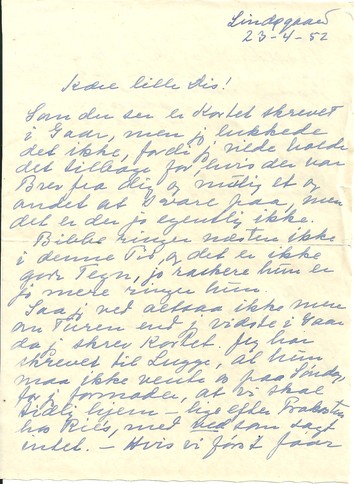 Lindøgaard
23-4-52
Kære lille Dis!
Som du ser er Kortet skrevet
i Gaar, men jeg lukkede
det ikke, fordi jeg vilde holde
det tilbage for hvis der var
Brev fra dig og mulig et og
andet at svare paa, men
det er der jo egentlig ikke.
Bibbe ringer næsten ikke
i denne Tid, og det er ikke
godt Tegn, jo raskere hun er
jo mere ringer hun.
Saa jeg ved altsaa ikke mere
om Turen end jeg vidste i Gaar
da jeg skrev Kortet. Jeg har
skrevet til Lugge, at hun
maa ikke vente os paa Søndag,
for jeg formoder, at vi skal
tidlig hjem – lige efter Frokosten
hos Riis, men ved som sagt
intet. – Hvis vi først faar